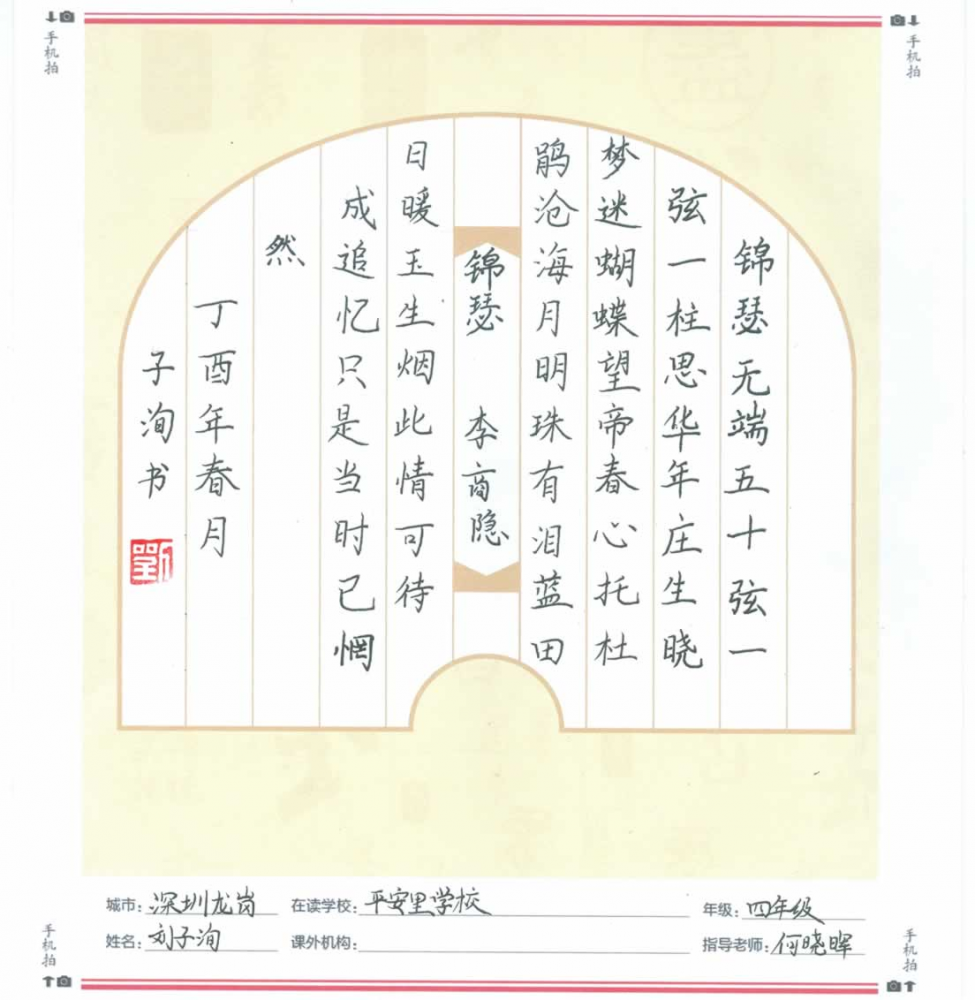 手机拍
手机拍
锦瑟无端五十弦一
弦一柱思华年庄生晓
梦迷蝴蝶望帝春心托杜
鹃沧海月明珠有泪蓝田
锦瑟 李商隐
日暖玉生烟此情可待
成追忆只是当时已惘
然
丁酉年春月
子洵书
劉
城市：深圳龙岗 在读学校：平安里学校 年级：四年级
姓名：刘子洵 课外机构： 指导老师：何晓晖
手机拍
手机拍